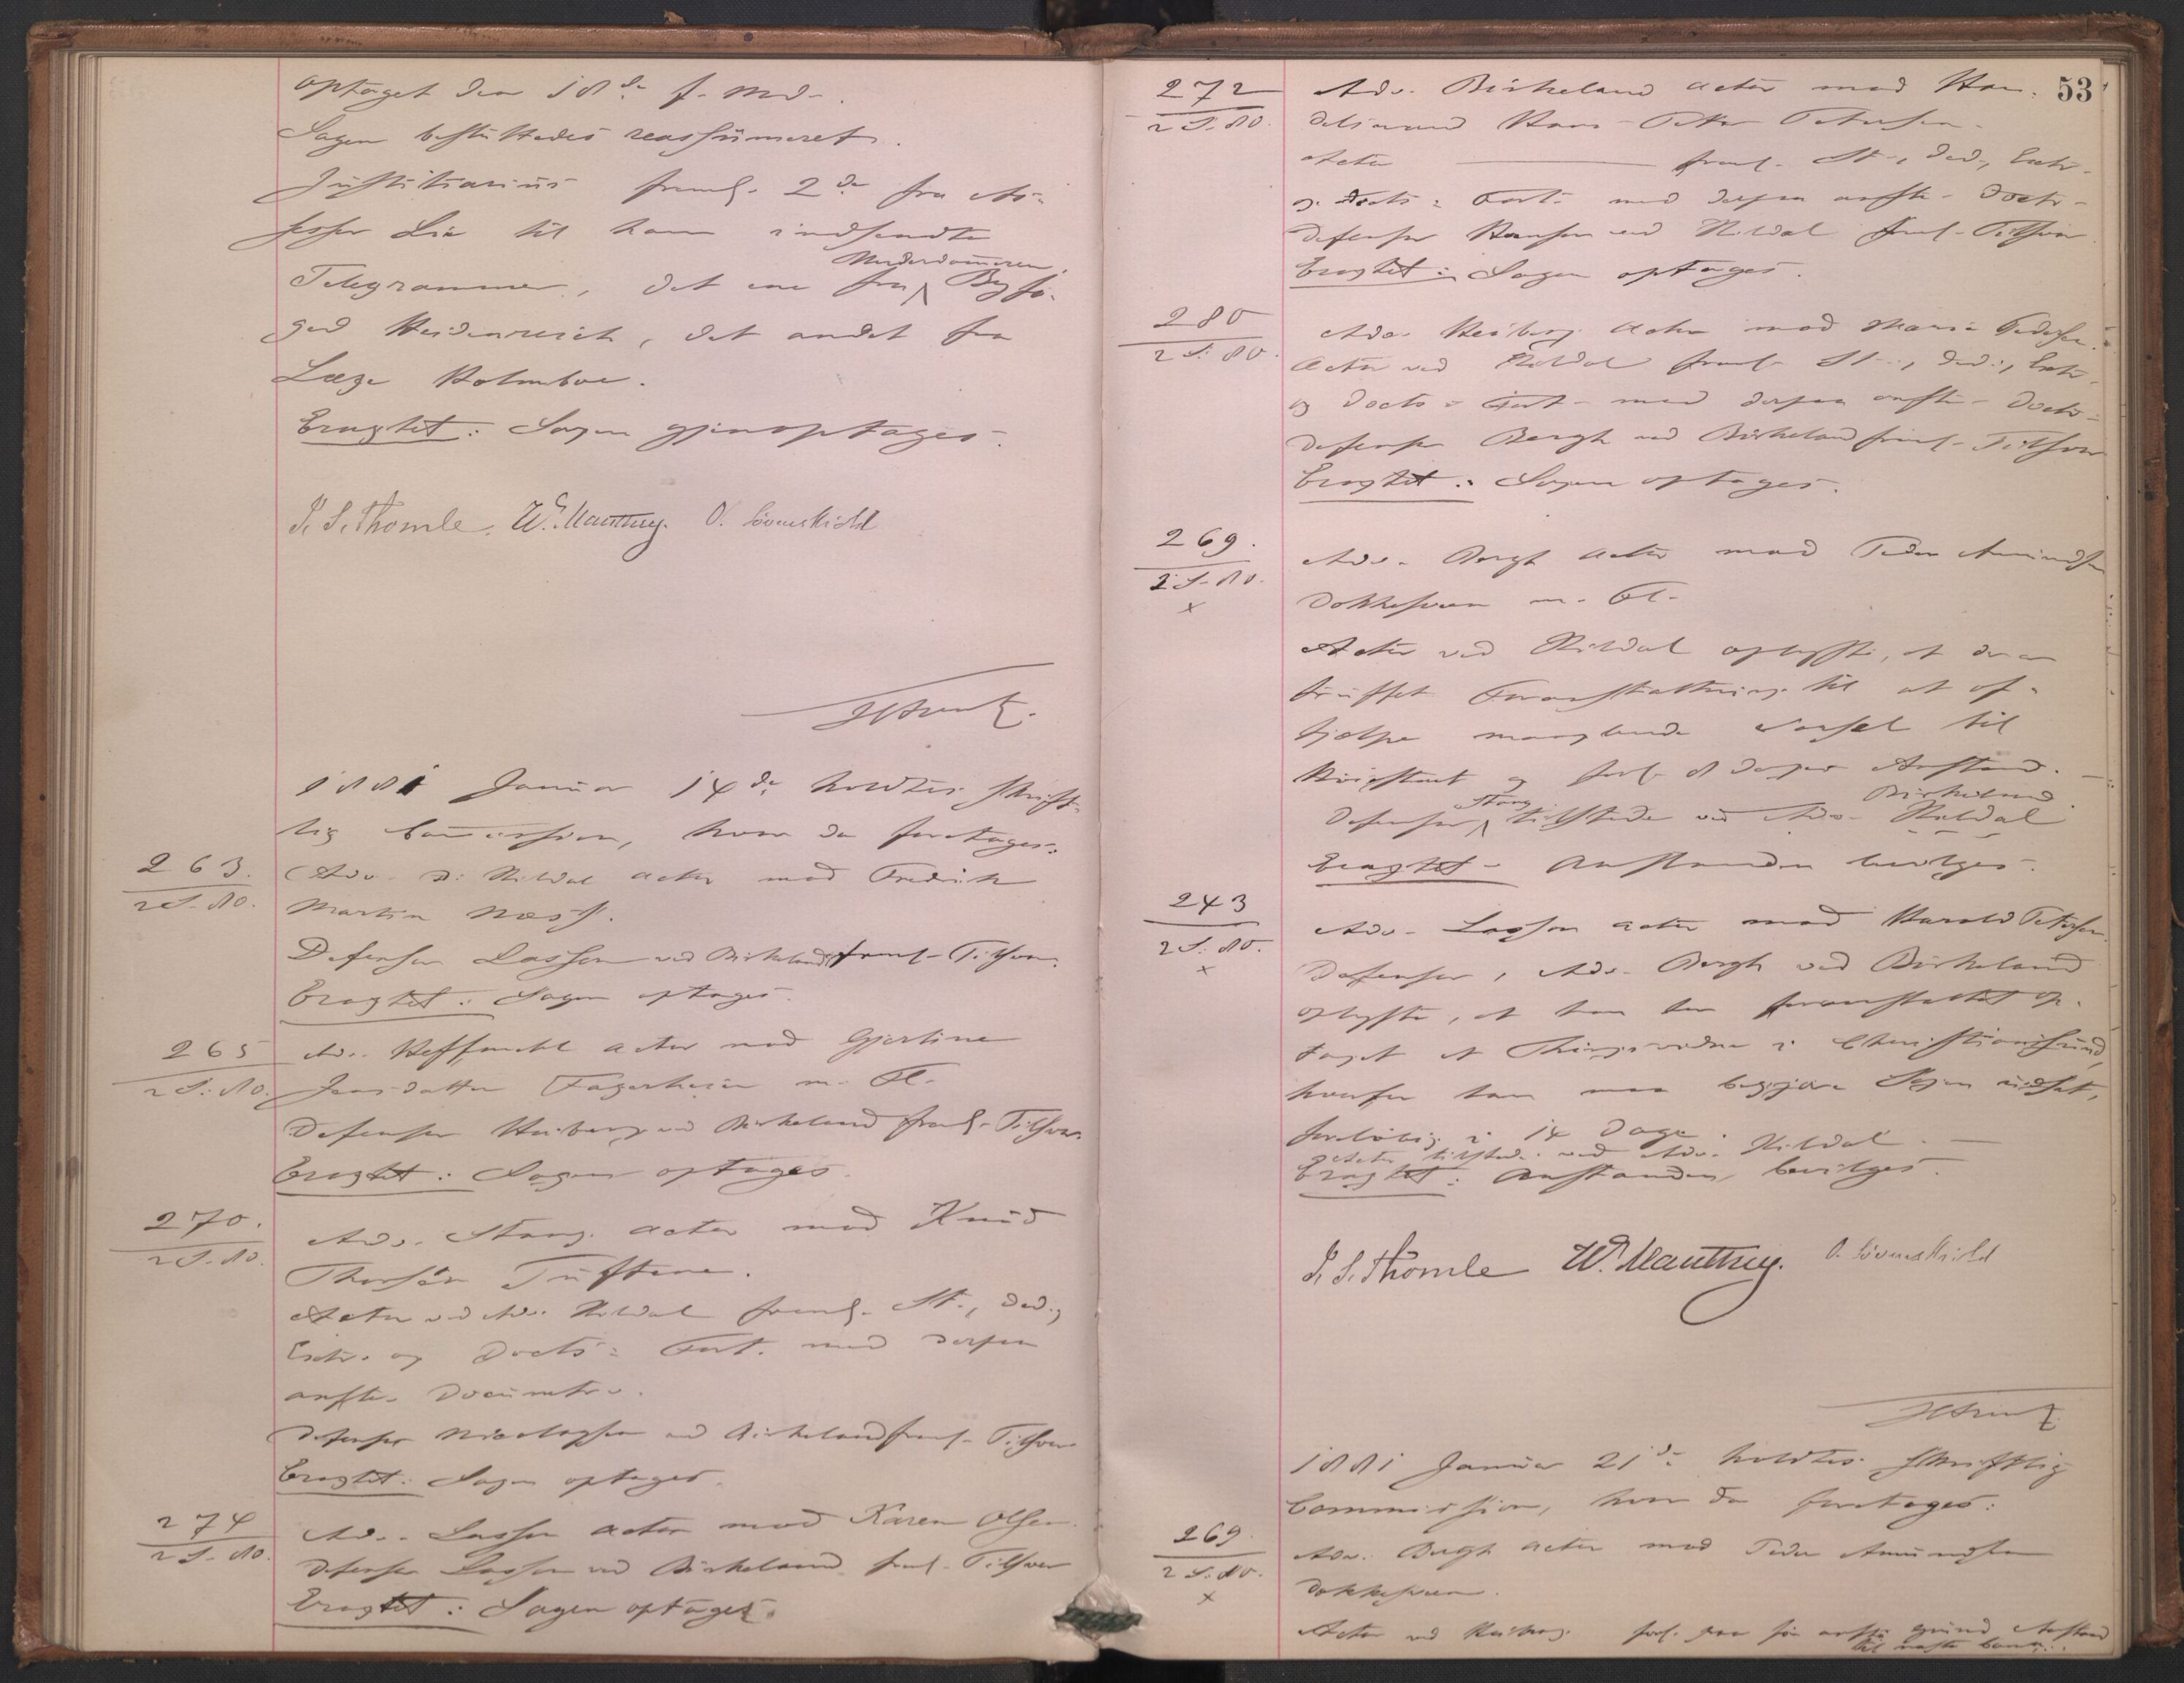 optaget den 18de f. Md.
Sagen besluttedes reassumeret.
Justitiarius freml. 2de fra As-
sessor Lie til ham indsendte
Telegrammer, det ene fra Underdommeren, Byfo-
ged Heidenreich, det andet fra
Læge Holmboe.
Eragtet: Sagen gjenoptages.
I. S. Thomle. W. Mautheg. O. Løvenskiold
1881 Januar 14de holdtes skrift-
lig Commission, hvor da foretages:
263.
2 S. 80.
Adv. Rildal actor mod Fredrik
Martin Næss.
Defensor Lasson ved Birkeland freml. Tilsvar.
Eragtet: Sagen optages.
265
2 S. 80.
Adv. Hefferm​ehl actor mod Gjertine
Jensdatter Fagerheim m. Fl.
Defensor Heiberg ved Birkeland freml. Tilsvar.
Eragtet: Sagen optages.
270.
2 S. 80.
Adv. Stang actor mod Knud
Thorsen Tuftene.
Actor ved Adv. Rildal freml. St., Ded.,
Extr. og Docts: Fort. med derpaa
anfte. Documter.
Defensor Nicolaysen ved Birkeland freml. Tilsvar
Eragtet: Sagen optages.
274
2 S. 80.
Adv. Lasson actor mod Karen Olsen.
Defensor Lasson ved Birkeland freml. Tilsvar
Eragtet: Sagen optages.
53
272
2 S. 80.
Adv. Birkeland actor mod Han-
delsmand Hans Peter Petersen.
Actor freml. St., Ded., Extr.
og Docts: Fort. med derpaa anfte. Doctr.
Defensor Hansen ved Rildal freml. Tilsvar
Eragtet: Sagen optages.
280
2 S. 80.
Adv. Heiberg actor mod Maria Pedersen.
Actor ved Rildal freml. St., Ded., Extr.
og Docts: Fort. med derpaa anfte. Doctr.
Defensor Bergh ved Birkeland freml. Tilsvar
Eragtet: Sagen optages.
269.
2 S. 80.
x
Adv. Bergh actor mod Peder Amundsen
Dokkesveen m. Fl.
Actor ved Rildal oplyste, at der er
truffet Foranstaltning til at af-
hjælpe manglende Varsel til
og forl. 8 Dages Anstand.
Defensor Stang tilstede ved Adv. Rildal Birkeland.
Eragtet: Anstanden bevilges.
243
2 S. 80.
x
Adv. Lasson actor mod Harald Petersen.
Defensor, Adv. Bergh ved Birkeland
oplyste, at han har foranstaltet op-
taget et Thingsvidne i Christianssund,
hvorfor han maa begjære Sagen udsat,
foreløbig i 14 Dage.
Actor tilstede ved Adv. Rildal.
Eragtet: Anstanden bevilges.
I. S. Thomle W. Mautheg. O. Løvenskiold
1881 Januar 21de holdtes skriftlig
Commission, hvor da foretages:
269.
2 S. 80.
x
Adv. Bergh actor mod Peder Amundsen
Dokkesveen.
Actor ved Heiberg forl. paa før anført Grund Anstand
til næste Comm.